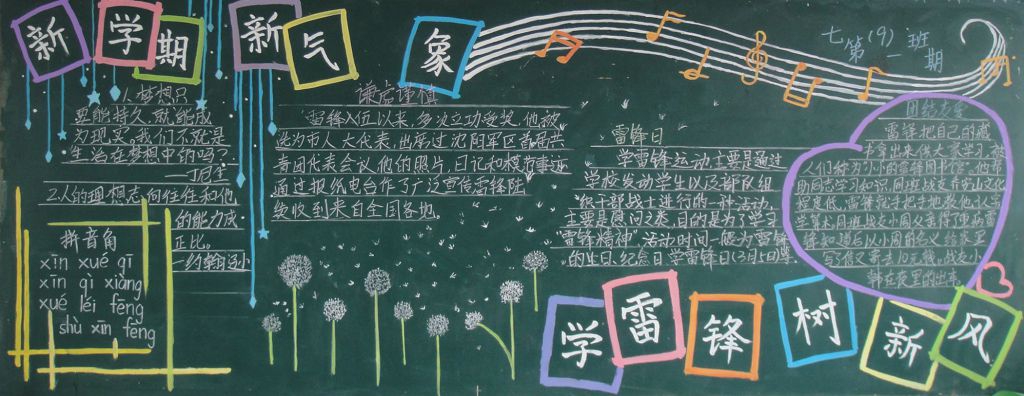 新学期 新气象
七(9)班
第一期
1.梦想只
要能持久,就能成
为现实。我们不就是
生活在梦想中的吗?
——丁尼生
2.人的理想志向往往和他
的能力成
正比。
—约翰逊
拼音角
xīn xué qī
xīn qì xiàng
xué léi fēng
shù xīn fēng
谦虚谨慎
雷锋入伍以来,多次立功受奖,他被
选为市人大代表,出席过沈阳军区首届共
青团代表会议,他的照片,日记和模范事迹
通过报纸电台作了广泛宣传雷锋陆
续收到来自全国各地。
雷锋日
学雷锋运动主要是通过
学校发动学生以及部队组
织干部战士进行的一种活动。
主要是慰问之类,目的是为了学习
"雷锋精神",活动时间一般为雷锋
的生日、纪念日学雷锋日(3月5日)等。
团结友爱
雷锋把自己的藏
书拿出来供大家学习,被
人们称为"小小的雷锋图书馆"。他帮
助同志学习知识,同班战友乔安山文化
程度低,雷锋就手把手地教他认字,
学算术,同班战友小周父亲得了重病雷
锋知道后以小周的名义给家里
写信又寄去10元钱。战友小
韩在夜里的出车
学雷锋树新风